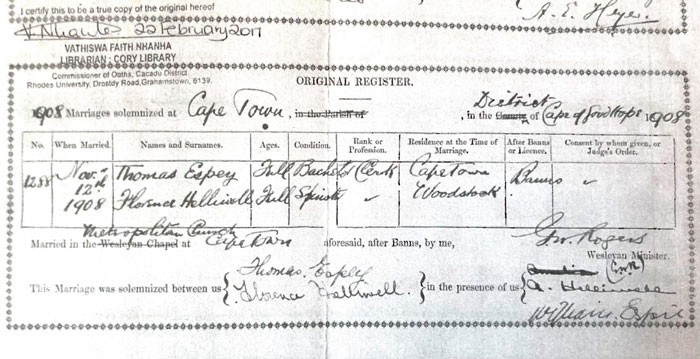 I certify this to be a true copy of the original hereof
22 February 2017
VATHISWA FAITH NHANHA
LIBRARIAN: CORY LIBRARY
Commissioner of Oaths, Cacadu District
Rhodes University, Drostdy Road, Grahamstown, 6139.
A. E. Heyer.
ORIGINAL REGISTER.
1908 Marriages solemnized at Cape Town, in the Parish of , in the County District of Cape of Good Hope 1908
No. When Married. Names and Surnames. Ages. Condition. Rank or Profession. Residence at the Time of Marriage. After Banns or Licence. Consent by whom given, or Judge's Order.
1288 Nov. 12th 1908 Thomas Espey Full Bachelor Clerk Cape Town Banns "
Florence Helliwell Full Spinster " Woodstock
Metropolitan Church
Married in the Wesleyan Chapel at Cape Town aforesaid, after Banns, by me, Geo. Rogers
Wesleyan Minister.
This Marriage was solemnized between us { Thomas Espey } in the presence of us {
Florence Helliwell. A. Helliwell
William Espie